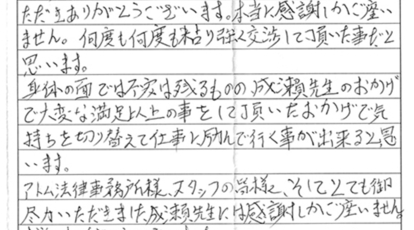 ただきありがとうございます。本当に感謝しかござい
ません。何度も何度も粘り強く交渉して頂いた事だと
思います。
身体の面では不安は残るものの、成瀬先生のおかげ
で大変な満足以上の事をして頂いたおかげで気
持ちを切り替えて仕事に励んで行く事が出来ると思
います。
アトム法律事務所様、スタッフの皆様、そしてとても御
尽力いただきました成瀬先生には感謝しかございません。